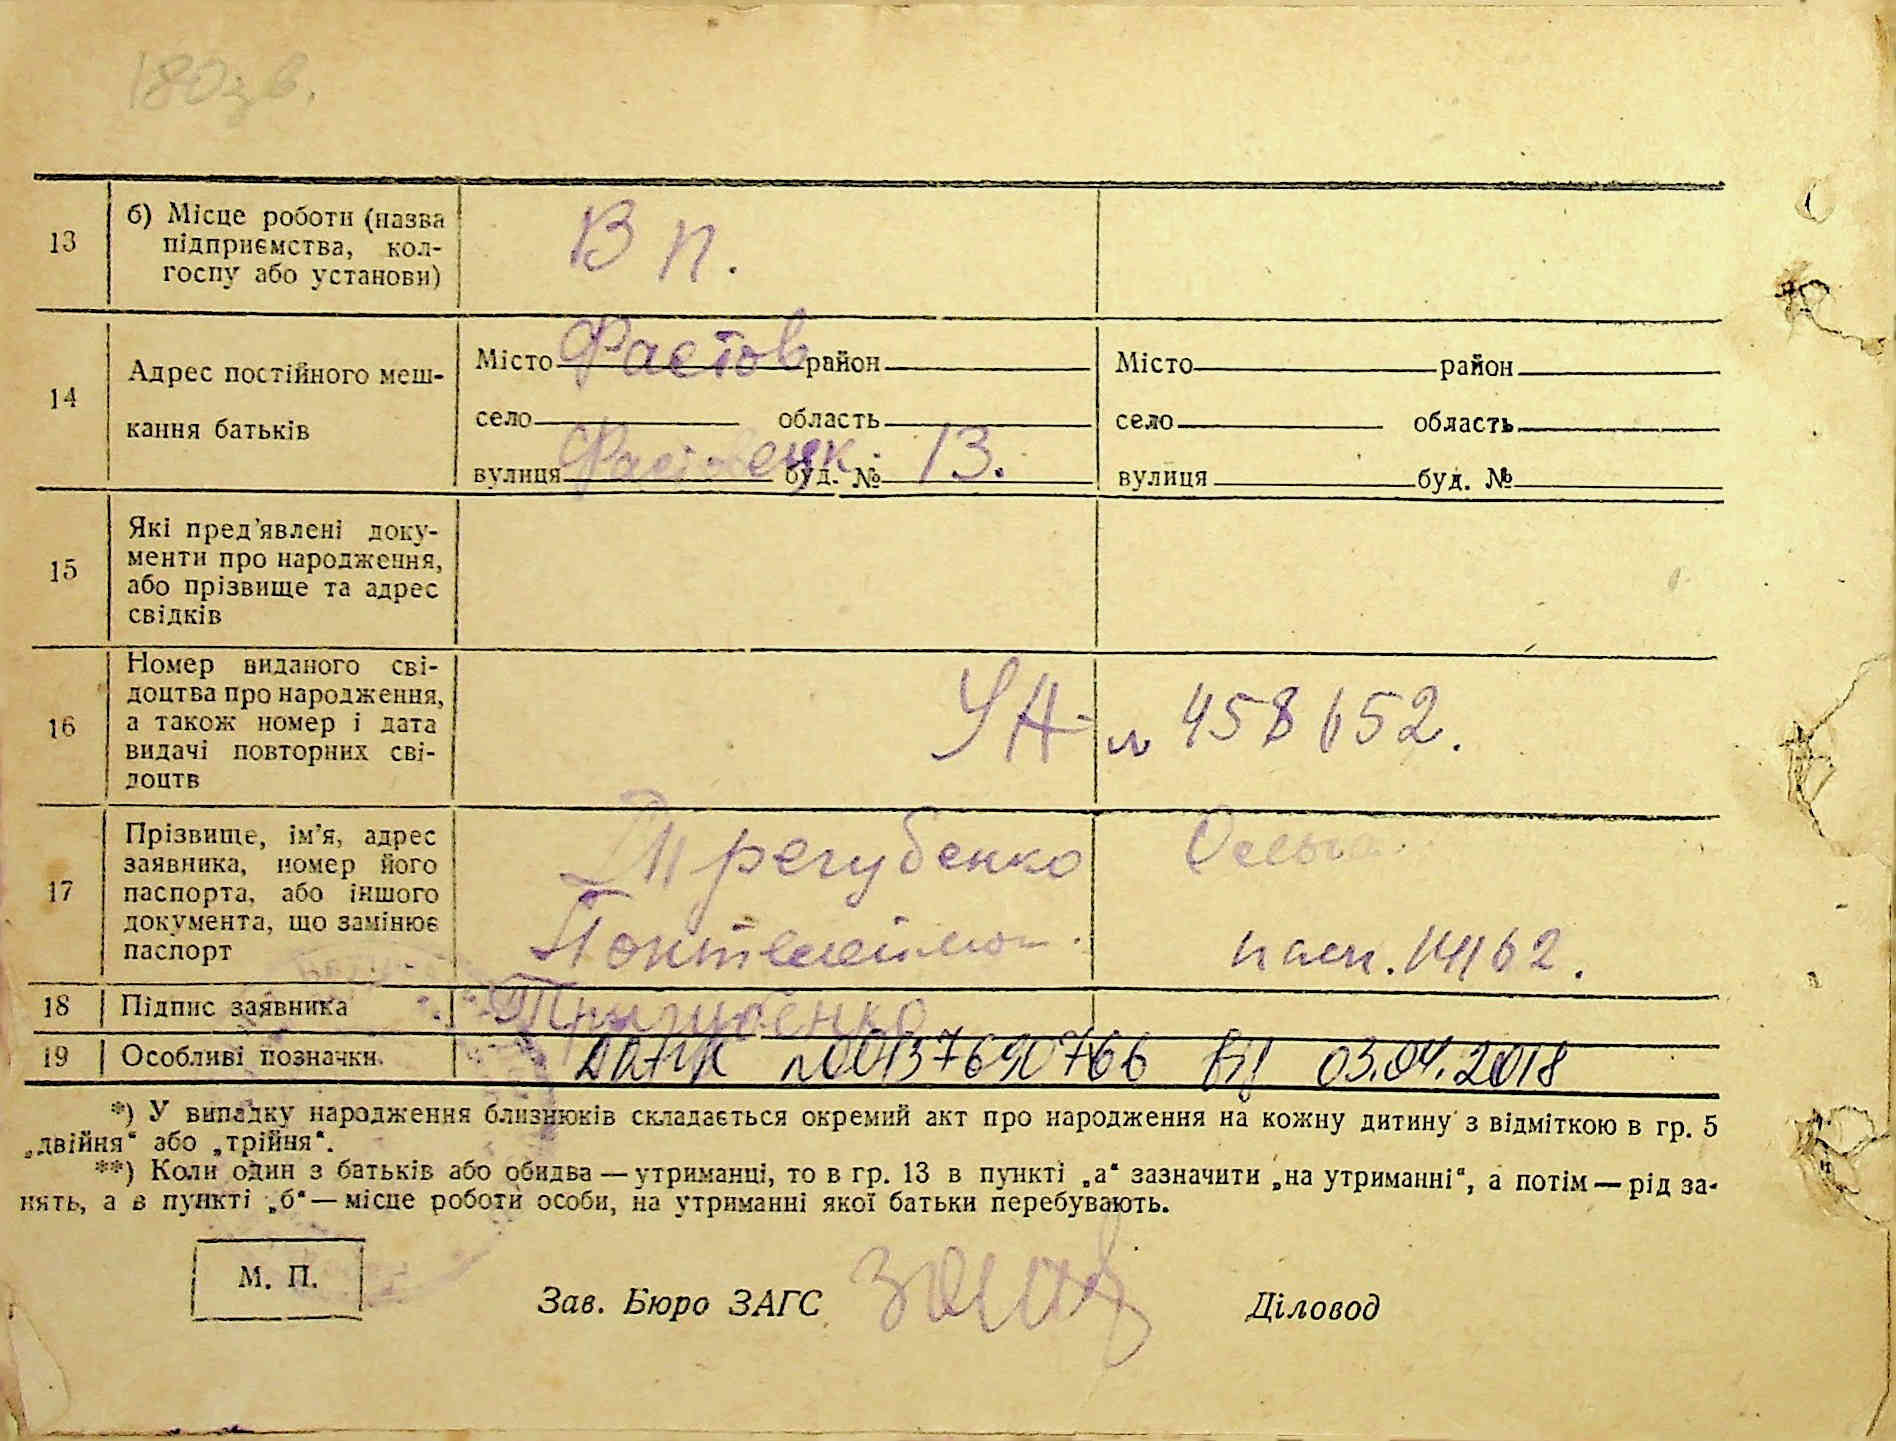 180 зв.
13
б) Місце роботи (назва
підприємства, кол-
госпу або установи)
В п.
14
Адрес постійного меш-
кання батьків
Місто Фастов район
село область
вулиця буд. № 13.
Місто район
село область
вулиця буд. №
15
Які пред'явлені доку-
менти про народження,
або прізвище та адрес
свідків
16
Номер виданого сві-
доцтва про народження,
а також номер і дата
видачі повторних сві-
доцтв
УА - № 458652.
17
Прізвище, ім'я, адрес
заявника, номер його
паспорта, або іншого
документа, що замінює
паспорт
Трегубенко Ольга
пасп. 14162.
18 Підпис заявника
19 Особливі позначки
n00137690766 від 03.04.2018
*) У випадку народження близнюків складається окремий акт про народження на кожну дитину з відміткою в гр. 5
„двійня“ або „трійня“.
**) Коли один з батьків або обидва — утриманці, то в гр. 13 в пункті „а“ зазначити „на утриманні“, а потім — рід за-
нять, а в пункті „б“ — місце роботи особи, на утриманні якої батьки перебувають.
М. П.
Зав. Бюро ЗАГС
Діловод